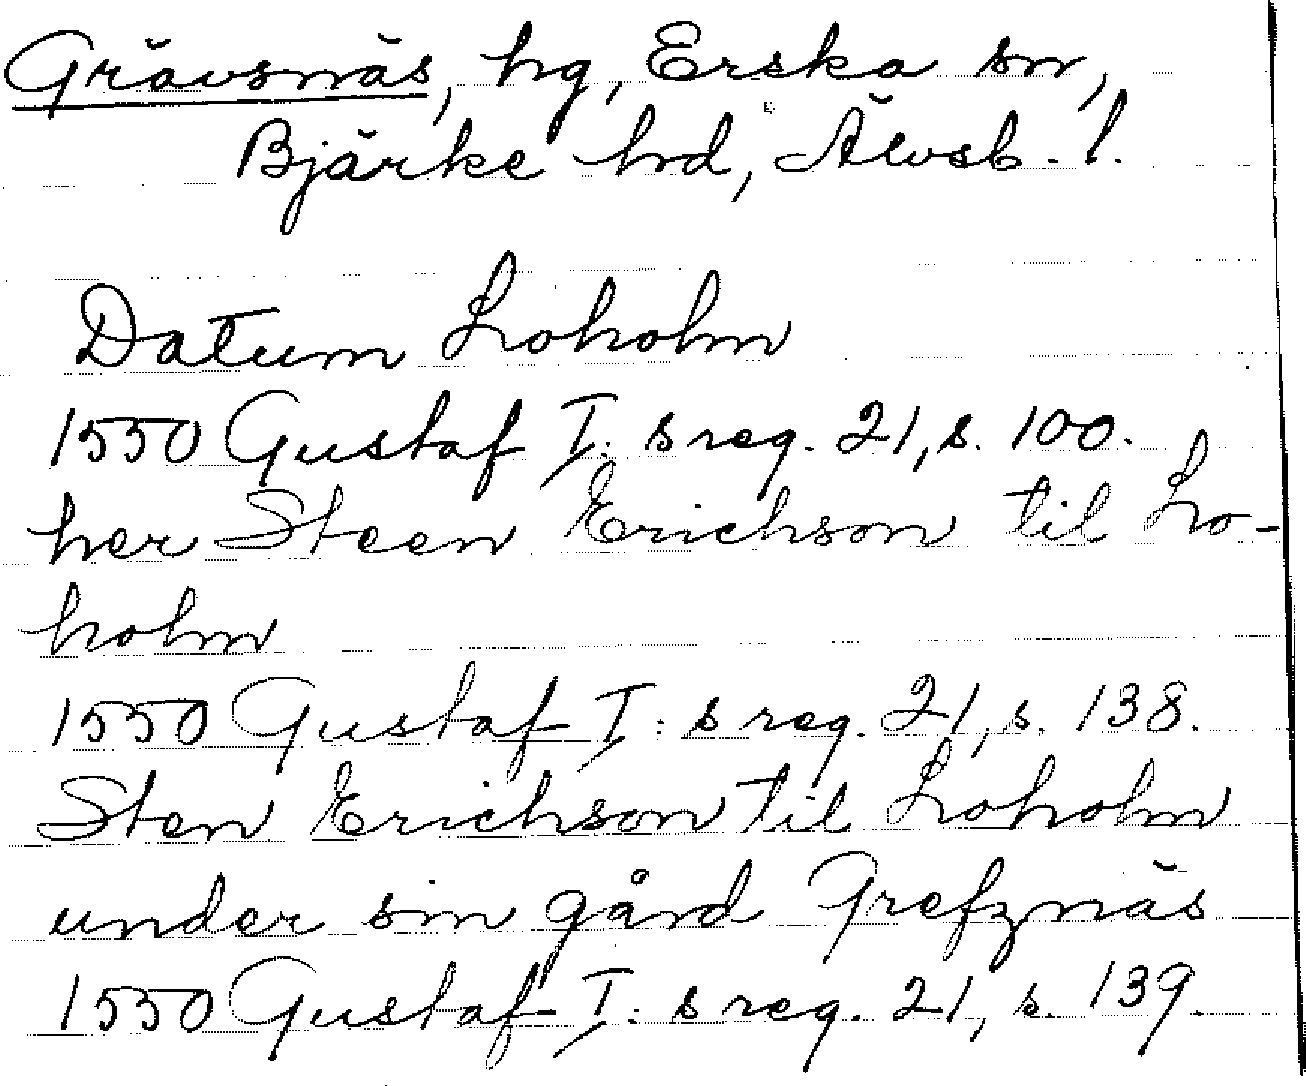 Grävsnäs, hg, Erska sn,
Bjärke hd, Älvsb. l.
Datum Loholm
1550 Gustaf I:s reg. 21, s. 100.
her Steen Erichson til Lo-
holm
1550 Gustaf I:s reg. 21, s. 138.
Sten Erichson til Loholm
under sin gård Grefznäs
1550 Gustaf I:s reg. 21, s. 139.